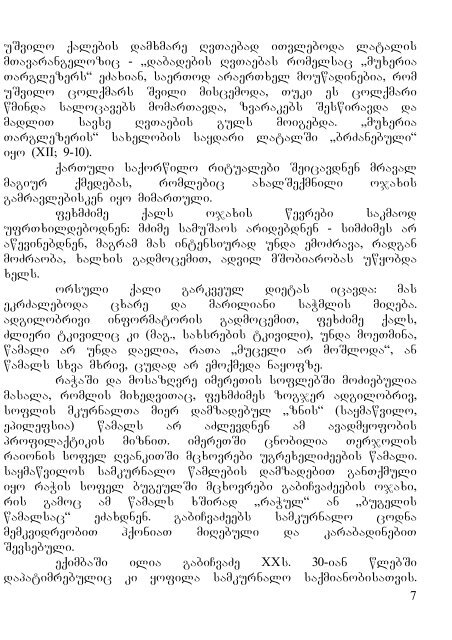 უშვილო ქალების დამხმარე ღვთაებად ითვლებოდა ლატალის
მთავარანგელოზიც - „დაბადების ღვთაებას რომელსაც „მუხერია
თარგლეზერს“ ეძახიან, საერთოდ არაერთხელ მოუწადინებია, რომ
უშვილო ცოლქმარს შვილი მისცემოდა, თუკი ეს ცოლქმარი
წმინდა სალოცავებს მომართავდა, ზვარაკებს შესწირავდა და
მადლით სავსე ღვთაების გულს მოიგებდა. „მუხერია
თარგლეზერის“ სახელობის საყდარი ლატალში „ბრძანებული“
იყო (XII; 9-10).
ქართული საქორწილო რიტუალები შეიცავდნენ მრავალ
მაგიურ ქმედებას, რომლებიც ახალშექმნილი ოჯახის
გამრავლებისკენ იყო მიმართული.
ფეხმძიმე ქალს ოჯახის წევრები საკმაოდ
უფრთხილდებოდნენ: მძიმე სამუშაოს არიდებდნენ - სიმძიმეს არ
აწევინებდნენ, მაგრამ მას ინტენსიურად უნდა ემოძრავა, რადგან
მოძრაობა, ხალხის გადმოცემით, ადვილ მშობიარობას უწყობდა
ხელს.
ორსული ქალი გარკვეულ დიეტას იცავდა: მას
ეკრძალებოდა ცხარე და მარილიანი საჭმლის მიღება.
ადგილობრივი ინფორმატორის გადმოცემით, ფეხძიმე ქალს,
ძლიერი ტკივილიც კი (მაგ., სახსრების ტკივილი), უნდა მოეთმინა,
წამალი არ უნდა დაელია, რათა „მუცელი არ მოშლოდა“, ან
წამალს სხვა მხრივ, ცუდად არ ემოქმედა ნაყოფზე.
რაჭაში და მოსაზღვრე იმერეთის სოფლებში მოძიებულია
მასალა, რომლის მიხედვითაც, ფეხმძიმეს ზოგჯერ ადგილობრივ,
სოფლის მკურნალთა მიერ დამზადებულ „ზნის“ (საყმაწვილო,
ეპილეფსია) წამალს არ აძლევდნენ ამ ავადმყოფობის
პროფილაქტიკის მიზნით. იმერეთში ცნობილია თერჯოლის
რაიონის სოფელ ღვანკითში მცხოვრები უგრეხელიძეების წამალი.
საყმაწვილოს სამკურნალო წამლების დამზადებით განთქმული
იყო რაჭის სოფელ ბუგეულში მცხოვრები გაბიჩვაძეების ოჯახი,
რის გამოც ამ წამალს ხშირად „რაჭულ“ ან „ბუგელის
წამალსაც“ ეძახდნენ. გაბიჩვაძეებს სამკურნალო ცოდნა
მემკვიდრეობით ჰქონიათ მიღებული და კარაბადინებით
შევსებული.
ექიმბაში ილია გაბიჩვაძე XXს. 30-იან წლებში
დაპატიმრებულიც კი ყოფილა სამკურნალო საქმიანობისათვის.
7